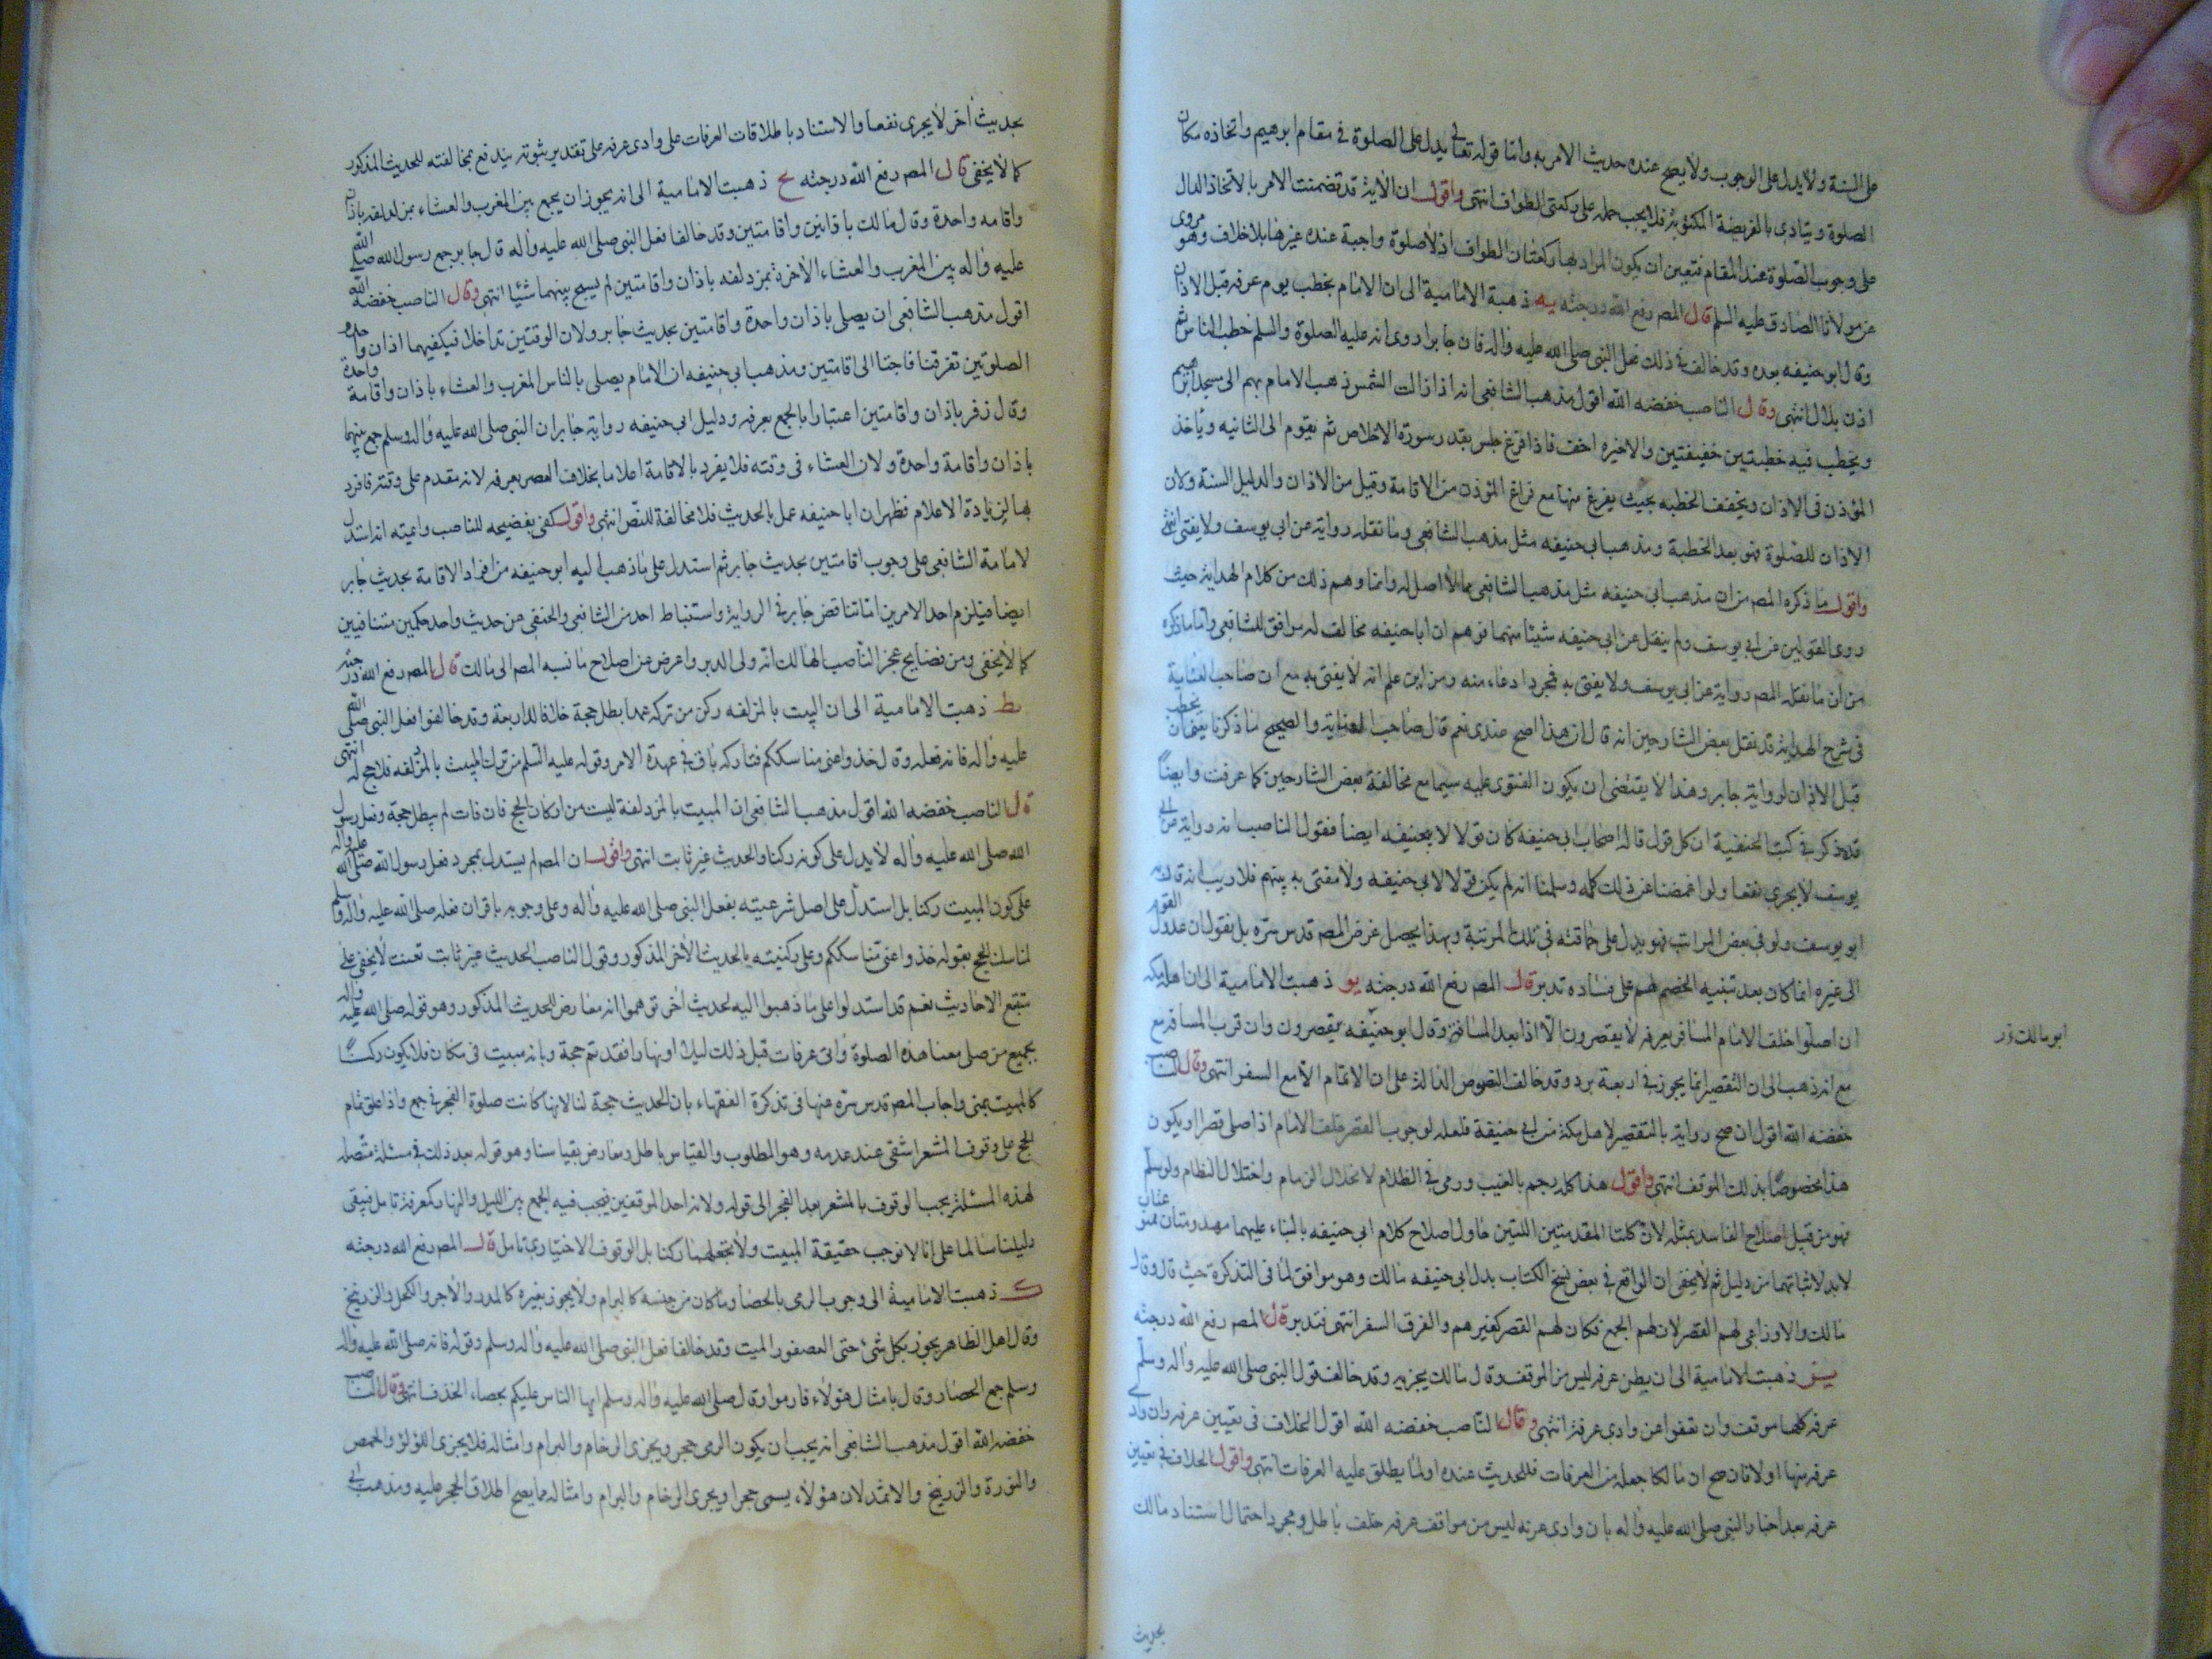 على السنة ولا يدل على الوجوب ولا يصح عنده حديث الامر به واما قوله تعالى يدل على الصلوة في مقام ابرهيم واتخاذه مكان
الصلوة ويتادى بالفريضة المكتوبة فلا يجب حمله على ركعتى الطواف انتهى واقول ان الآية قد تضمنت الامر بالاتخاذ الدال
على وجوب الصلوة عند المقام فتعين ان يكون المراد بها ركعتان الطواف اذ لا صلوة واجبة عنده غيرها بلا خلاف وهو مروى
عن مولانا الصادق عليه السلم قال المصر رفع الله درجته يه ذهبة الامامية الى ان الامام يخطب يوم عرفه قبل الاذان
وقال ابو حنيفه بعده وقد خالف في ذلك فعل النبى صلى الله عليه وآله فان جابرا روى انه عليه الصلوة والسلم خطب الناس ثم
اذن بلال انتهى وقال الناصب خفضه الله اقول مذهب الشافعى انه اذا زالت الشمس ذهب الامام بهم الى مسجد ابرهيم
ويخطب فيه خطبتين خفيفتين والاخيره اخف فاذا فرغ جلس بقدر سورة الاخلاص ثم يقوم الى الثانيه وياخذ
المؤذن فى الاذان ويخفف الخطبه بحيث يفرغ منها مع فراغ المؤذن من الاقامة وقيل من الاذان والدليل السنة ولان
الاذان للصلوة فهو بعد الخطبة ومذهب ابى حنيفه مثل مذهب الشافعى وما نقله رواية عن ابى يوسف ولا يفتى انتهى
واقول ما ذكره المصر من ان مذهب ابى حنيفه مثل مذهب الشافعى مما لا اصل له وانما وهم ذلك من كلام الهداية حيث
روى القولين عن ابى يوسف ولم ينقل عن ابى حنيفه شيئا منهما فوهم ان ابا حنيفه مخالف له موافق للشافعى واما ما ذكره
من ان ما نقله المصر رواية عن ابى يوسف ولا يفتى به فمجرد ادعاء منه ومن اين علم انه لا يفتى به مع ان صاحب العناية
فى شرح الهداية قد نقل بعض الشارحين انه قال ان هذا اصح عندى نعم قال صاحب العناية والصحيح ما ذكرنا يخطب
قبل الاذان لرواية جابر وهذا لا يقتضى ان يكون الفتوى عليه سيما مع مخالفة بعض الشارحين كما عرفت وايضاً
قد ذكر في كتب الحنفية ان كل قول قاله اصحاب ابى حنيفه كان قولا لابى حنيفه ايضا فقول الناصب انه رواية عن ابى
يوسف لا يجرى نفعا ولو اغمضنا عن ذلك كله وسلمنا انه لم يكن قولا لابى حنيفه ولا مفتى به بينهم فلا ريب انه قاله
ابو يوسف ولو فى بعض المراتب فهو يدل على حماقته فى تلك المرتبة وبهذا يحصل غرض المصر قدس سره بل نقول ان عدول القوم
الى غيره انما كان بعد تنبيه الخصم لهم على فساده تدبر قال المصر رفع الله درجته يو ذهبت الامامية الى ان اهل مكه
ان اصلوا خلف الامام المسافر بعرفه لا يقصرون الا اذا بعد المسافة وقال ابو حنيفه يقصرون وان قرب المسافه مع
ابو مالك
مع انه ذهب الى ان التقصير انما يجوز في اربعة برد وقد خالف النصوص الدالة على ان الاتمام الا مع السفر انتهى وقال الناصب
خفضه الله اقول ان صح رواية بالتقصير لاهل مكة من ابى حنيفة فلعله لوجوب القصر خلف الامام اذا صلى قصرا ويكون
هذا مخصوصاً بذلك الموقف انتهى واقول هذا كله رجم بالغيب ورمى في الظلام لا نحلال الزمام واختلال النظام ولو سلم
فهو من قبيل اصلاح الفاسد بمثله لان كلتا المقدمتين اللتين حاول اصلاح كلام ابى حنيفه بالبناء عليهما مهدومتان
لابد لاثباتهما من دليل ثم لا يخفى ان الواقع في بعض نسخ الكتاب بدل ابى حنيفه مالك وهو موافق لما فى التذكرة حيث قال وقال
مالك والاوزاعى لهم القصر لان لهم الجمع فكان لهم القصر كغيرهم والفرق السفر انتهى فتدبر قال المصر رفع الله درجته
يز ذهبت الامامية الى ان بطن عرفه ليس من الموقف وقال مالك يجزيه وقد خالف قول النبى صلى الله عليه وآله وسلم
عرفه كلها موقف وان تقفوا عن وادى عرفة انتهى وقال الناصب خفضه الله اقول الخلاف فى تعيين عرفه وان وادى
عرفه منها او لا فان صح ان مالكا جعله من العرفات فللحديث عنده او لما يطلق عليه العرفات انتهى واقول الخلاف في تعيين
عرفه بعد اخبار النبى صلى الله عليه وآله بان وادى عرنه ليس من مواقف عرفه خلف باطل ومجرد احتمال استناد مالك
بحديث
بحديث آخر لا يجرى نفعا والاستناد باطلاقات العرفات على وادى عرفه على تقدير ثبوته يندفع بمخالفته للحديث المذكور
كما لا يخفى قال المصر رفع الله درجته يح ذهبت الامامية الى انه يجوز ان يجمع بين المغرب والعشاء بمزدلفة باذان
واقامه واحدة وقال مالك باذانين واقامتين وقد خالفا فعل النبى صلى الله عليه وآله قال جابر جمع رسول الله صلى الله
عليه وآله بين المغرب والعشاء الآخرة بمزدلفه باذان واقامتين لم يسبح بينهما شيئا انتهى وقال الناصب خفضه الله
اقول مذهب الشافعى ان يصلى باذان واحدة واقامتين بحديث جابر ولان الوقتين تداخلا فيكفيهما اذان واحده
الصلوتين تفرقتا فاحتاجا الى اقامتين ومذهب ابى حنيفه ان الامام يصلى بالناس المغرب والعشاء باذان واقامة واحدة
وقال زفر باذان واقامتين اعتبارا بالجمع بعرفه ودليل ابى حنيفه رواية جابر ان النبى صلى الله عليه وآله وسلم جمع بينهما
باذان واقامة واحدة ولان العشاء فى وقته فلا يفرد بالاقامة اعلاما بخلاف العصر بعرفه لانه مقدم على وقته فافرد
بها لزيادة الاعلام فظهر ان ابا حنيفه عمل بالحديث فلا مخالفة للنص انتهى واقول كفى بفضيحه للناصب واعيته انه استدل
لامامة الشافعى على وجوب اقامتين بحديث جابر ثم استدل على ما ذهب اليه ابو حنيفه من افراد الاقامة بحديث جابر
ايضا فيلزم احد الامرين اما تناقض جابر في الرواية واستنباط احد من الشافعى والحنفى من حديث واحد حكمين متنافيين
كما لا يخفى ومن فضايح عجز الناصب الهالك انه ولى الدبر واعرض عن اصلاح ما نسبه المصر الى مالك قال المصر رفع الله درجته
يط ذهبت الامامية الى ان المبيت بالمزلفه ركن من تركه عمدا بطل حجة خلافا للاربعة وقد خالفوا فعل النبى صلى الله
عليه وآله فانه فعله وقال خذوا عنى مناسككم فتاركه باق في عهدة الامر وقوله عليه السلم من ترك المبيت بالمزدلفه فلا حج له انتهى
قال الناصب خفضه الله اقول مذهب الشافعى ان المبيت بالمزدلفة ليست من اركان الحج فان فات لم يبطل حجة وفعل رسول
الله صلى الله عليه وآله لا يدل على كونه ركنا والحديث غير ثابت انتهى واقول ان المصر لم يستدل بمجرد فعل رسول الله صلى الله عليه وآله
على كون المبيت ركنا بل استدل على اصل شرعيته بفعل النبى صلى الله عليه وآله وعلى وجوبه باقران فعله صلى الله عليه وآله وسلم
لمناسك الحج بقوله خذوا عنى مناسككم وعلى ركنيته بالحديث الآخر المذكور وقول الناصب الحديث غير ثابت تعنت لا يخفى على
متتبع الاحاديث نعم قد استدلوا على ما ذهبوا اليه لحديث آخر توهموا انه معارض للحديث المذكور وهو قوله صلى الله عليه وآله
بجميع من صلى معنا هذه الصلوة واتى عرفات قبل ذلك ليلا او نهارا فقد تم حجة وبانه مبيت فى مكان فلا يكون ركناً
كالمبيت بمنى واجاب المصر قدس سره عنها فى تذكرة الفقهاء بان الحديث حجة لنا لانها كانت صلوة الفجر في جمع واذا علق تمام
الحج على وقوف المشعر انتفى عند عدمه وهو المطلوب والقياس باطل ومعارض بقياسنا وهو قوله بعد ذلك في مسئلة متصله
لهذه المسئلة يجب الوقوف بالمشعر بعد الفجر الى قوله ولانه احد الموقفين فيجب فيه الجمع بين الليل والنهار كعرفة تامل فيبقى
دليلنا سالما على انا لا نوجب حقيقة المبيت ولا نجعلها ركنا بل الوقوف الاختيارى تامل قال المصر رفع الله درجته
ك ذهبت الامامية الى وجوب الرمى بالحصا وما كان من جنسه كالبرام ولا يجوز بغيره كالمدر والآجر والكحل والزرنيخ
وقال اهل الظاهر يجوز بكل شئ حتى العصفور الميت وقد خالفا فعل النبى صلى الله عليه وآله وسلم وقوله فانه صلى الله عليه وآله
وسلم جمع الحصار وقال بامثال هؤلاء فارموا وقال صلى الله عليه وآله وسلم ايها الناس عليكم بحصاء الخذف انتهى وقال الناصب
خفضه الله اقول مذهب الشافعى انه يجب ان يكون الرمى بحجر ويجزى الرخام والبرام وامثاله فلا يجزى اللؤلؤ والجص
والنورة والزرنيخ والاثمد لان هؤلاء يسمى حجرا ويجرى الرخام والبرام وامثاله مما يصح اطلاق الحجر عليه ومذهب ابى